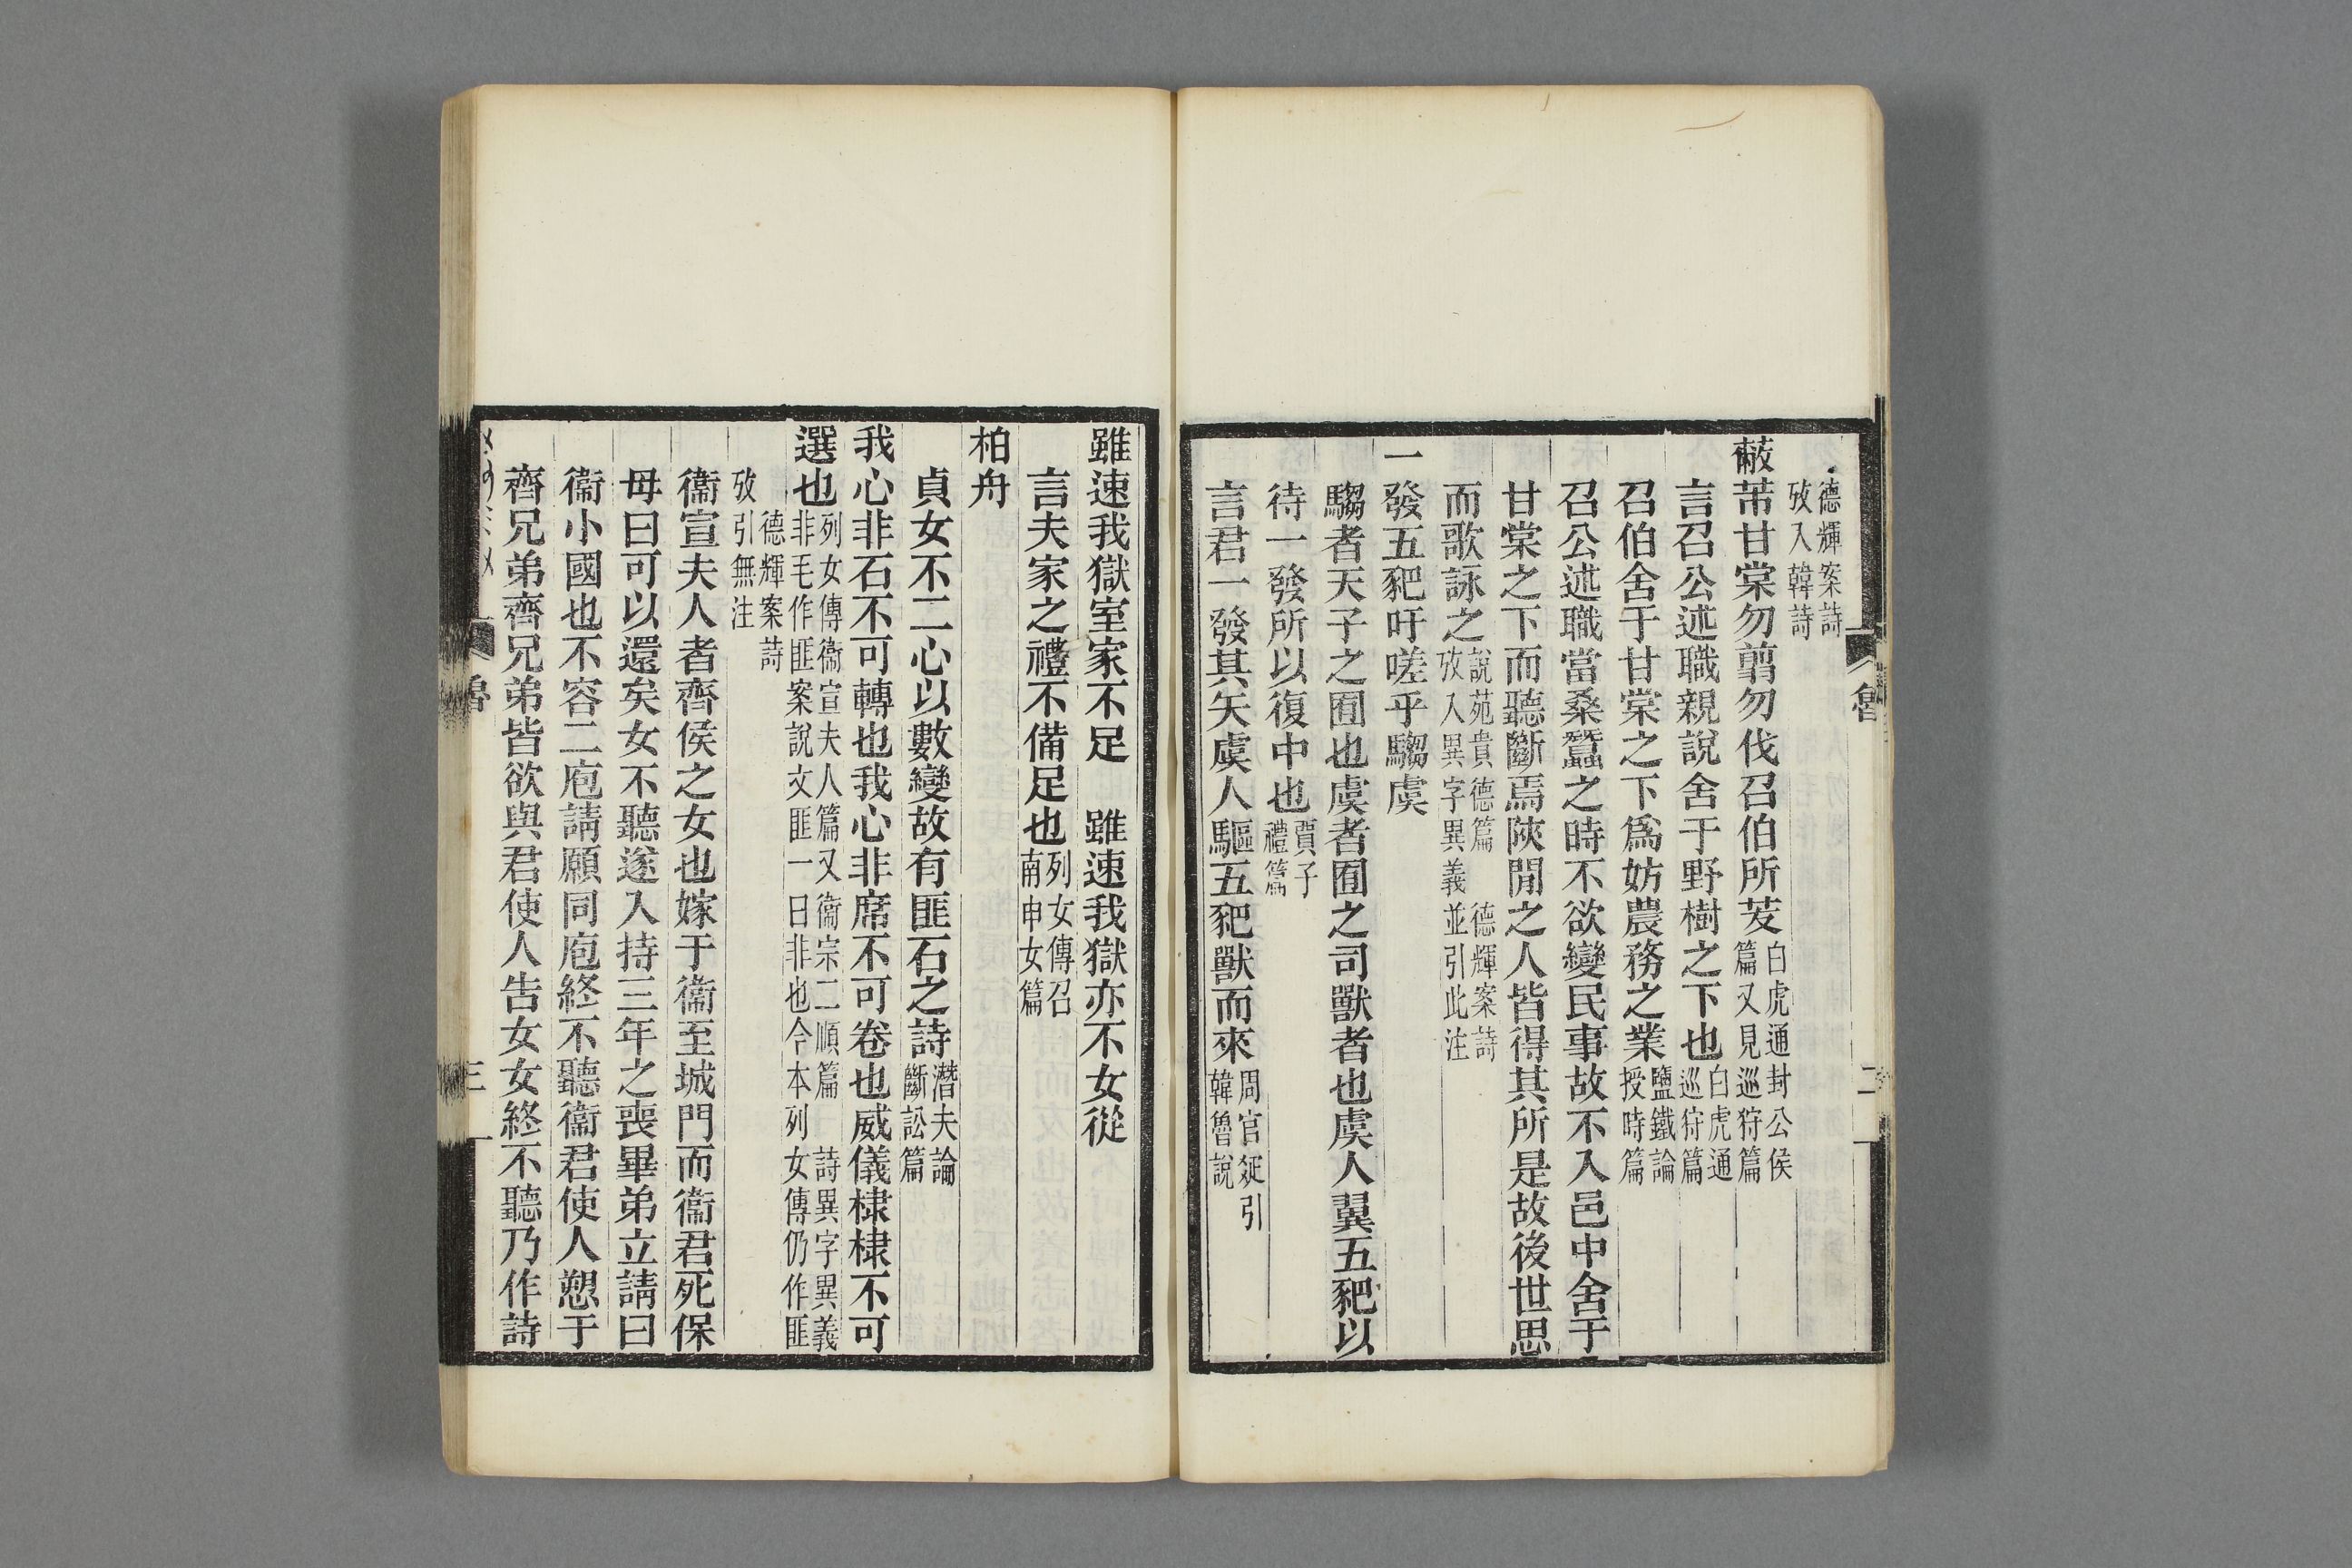 德輝案詩
攷入韓詩
蔽芾甘棠勿翦勿伐召伯所茇白虎通封公侯篇又見巡狩篇
言召公述職親說舍于野樹之下也白虎通巡狩篇
召伯舍于甘棠之下爲妨農務之業鹽鐵論授時篇
召公述職當桑蠶之時不欲變民事故不入邑中舍于
甘棠之下而聽斷焉陝閒之人皆得其所是故後世思
而歌詠之說苑貴德篇 德輝案詩攷入異字異義並引此注
一發五豝吁嗟乎騶虞
騶者天子之囿也虞者囿之司獸者也虞人翼五豝以
待一發所以復中也賈子禮篇
言君一發其矢虞人驅五豝獸而來周官疏引韓魯說
魯
二
雖速我獄室家不足 雖速我獄亦不女從
言夫家之禮不備足也列女傳召南申女篇
柏舟
貞女不二心以數變故有匪石之詩潛夫論斷訟篇
我心非石不可轉也我心非席不可卷也威儀棣棣不可
選也列女傳衞宣夫人篇又衞宗二順篇 詩異字異義非毛作匪案說文匪一曰非也今本列女傳仍作匪
德輝案詩
攷引無注
衞宣夫人者齊侯之女也嫁于衞至城門而衞君死保
母曰可以還矣女不聽遂入持三年之喪畢弟立請曰
衞小國也不容二庖請願同庖終不聽衞君使人愬于
齊兄弟齊兄弟皆欲與君使人告女女終不聽乃作詩
魯
三